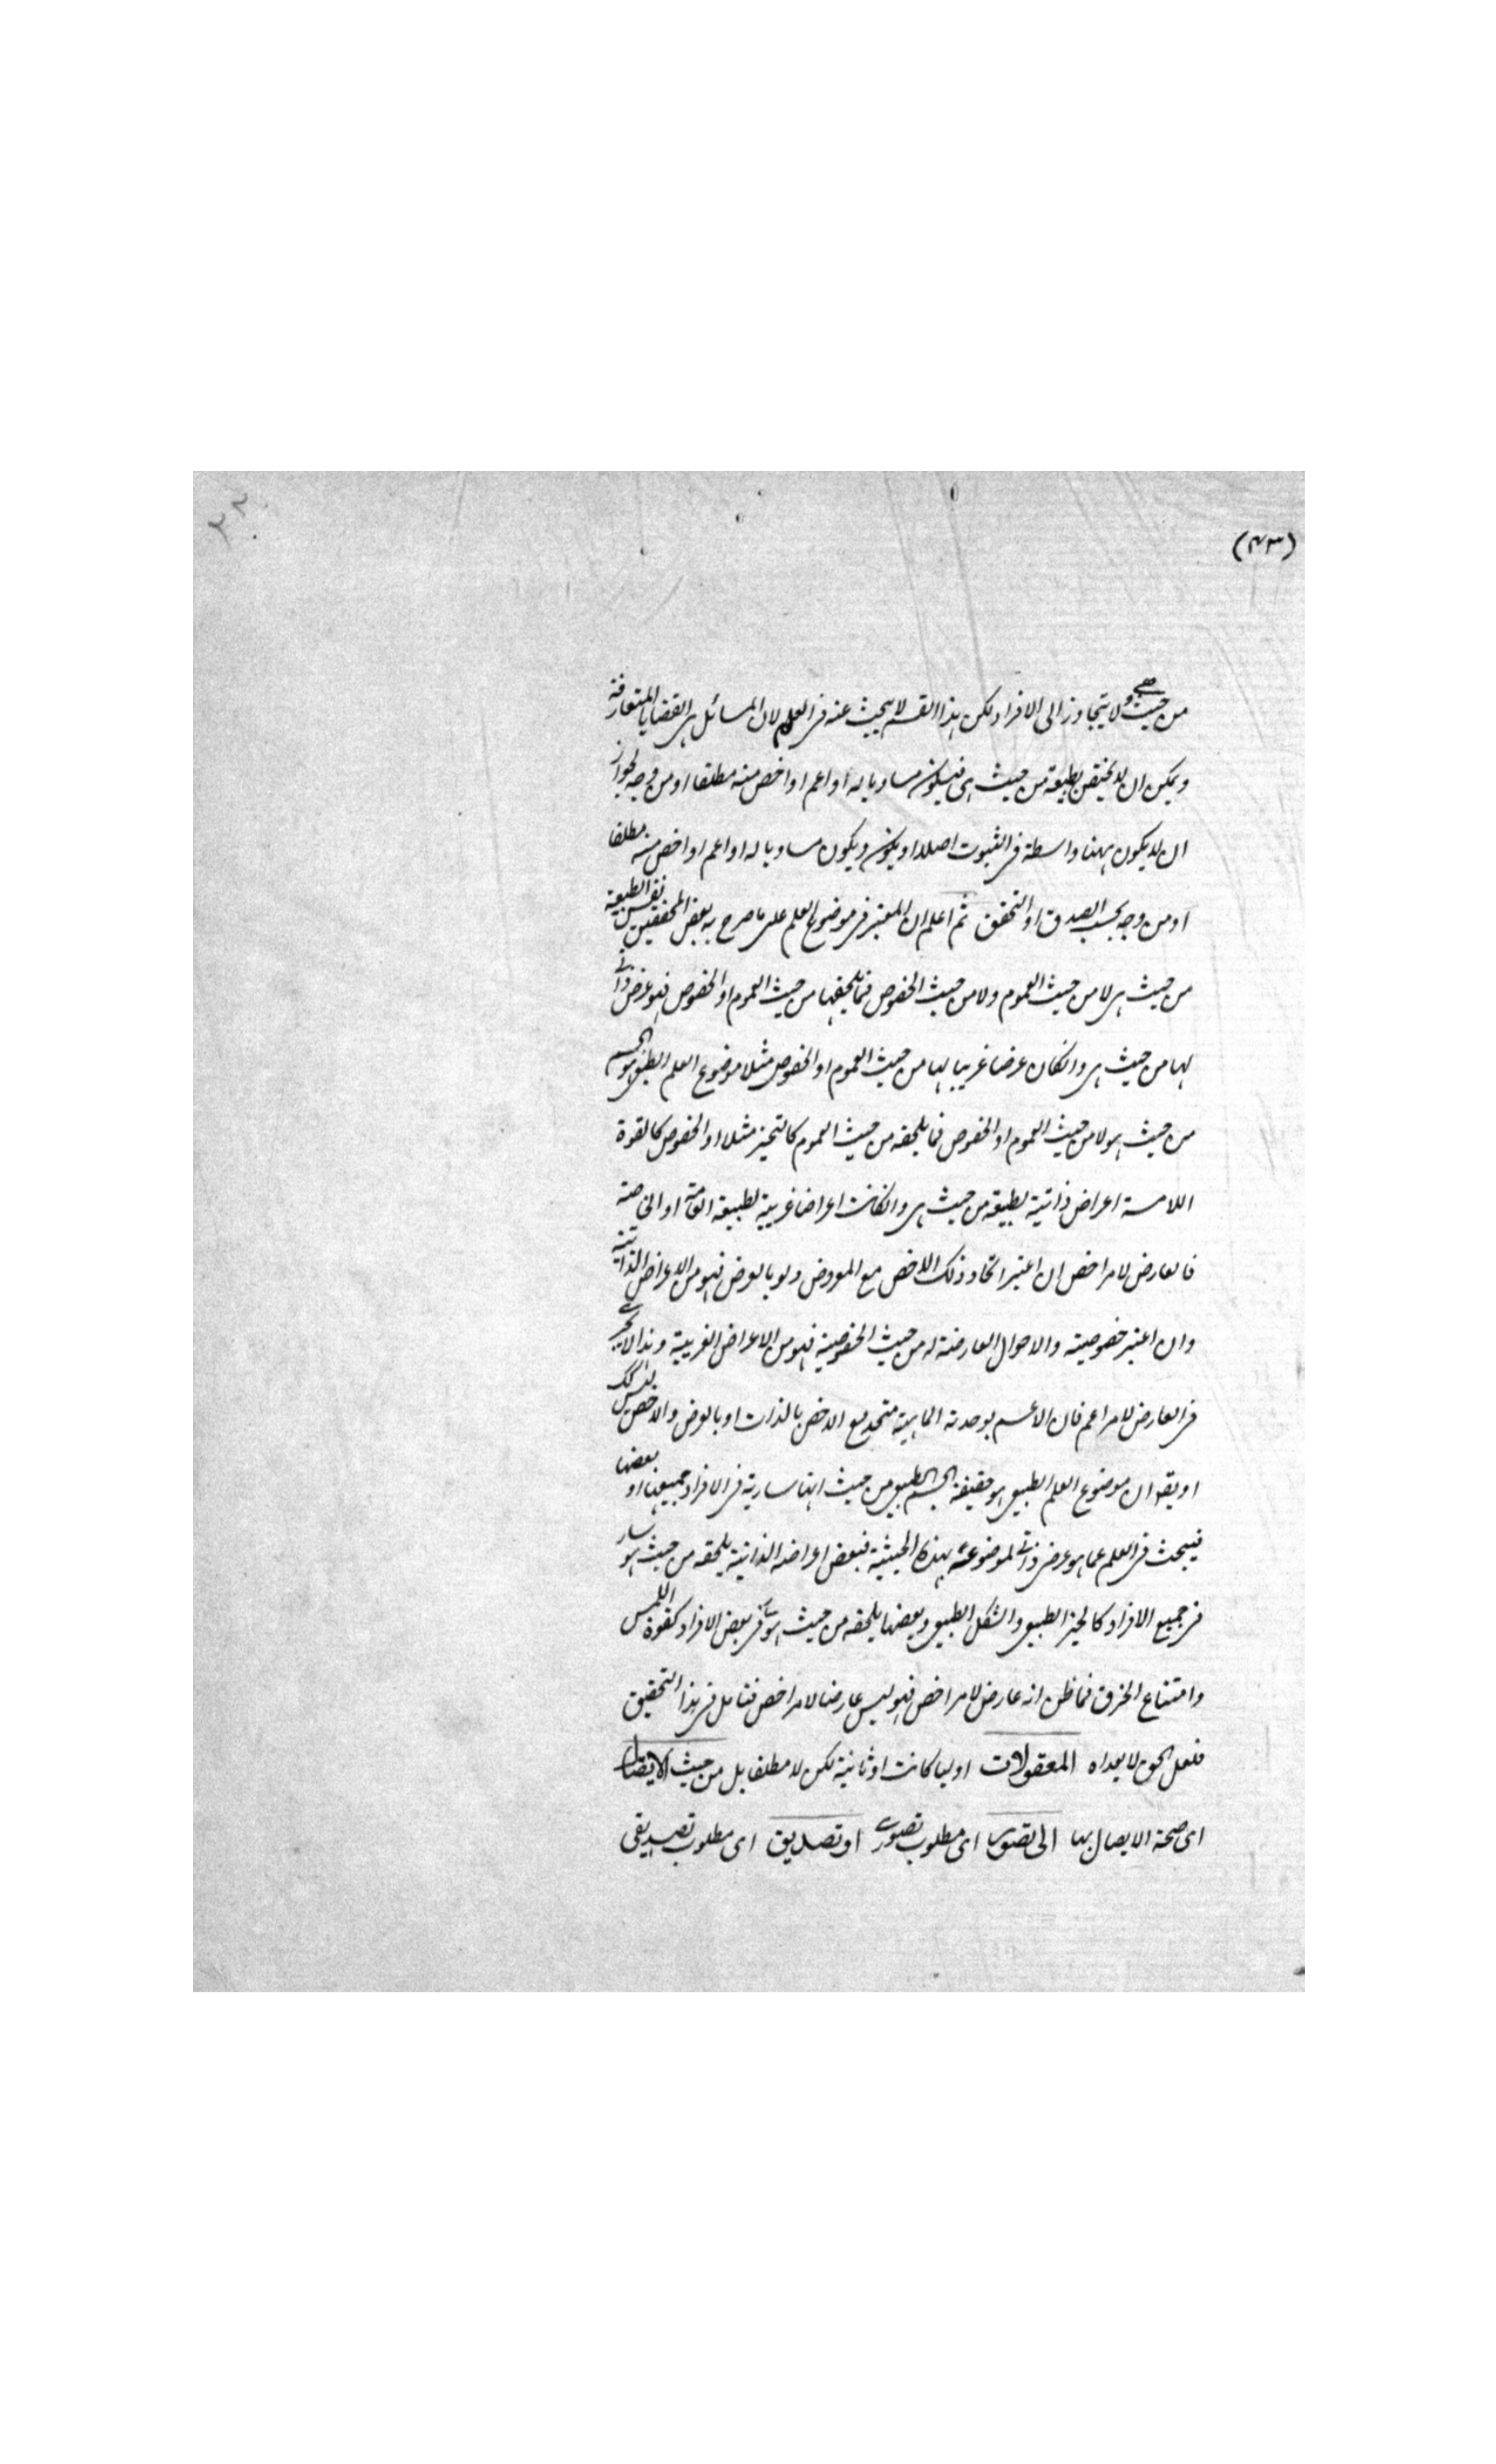 (٤٣)
٣٢
من حيث هى ولا يتجاوز الى الافراد لكن هذا القسم لا يبحث عنه فى العلم لان المسائل هى القضايا المتعارفة
ويمكن ان لا يختص بطبيعة من حيث هى فيكون مساويا له او اعم او اخص منه مطلقا او من وجه لجواز
ان لا يكون ههنا واسطة فى الثبوت اصلا او يكون ويكون مساويا له او اعم او اخص منه مطلقا
او من وجه بحسب الصدق او التحقق ثم اعلم ان المعتبر فى موضوع العلم على ما صرح به بعض المحققين نفس الطبيعة
من حيث هى لا من حيث العموم ولا من حيث الخصوص فما يلحقها من حيث العموم او الخصوص فهو عرض ذاتى
لها من حيث هى وانكان عرضا غريبا لها من حيث العموم او الخصوص مثلا موضوع العلم الطبيعى هو الجسم
من حيث هو لا من حيث العموم او الخصوص فما يلحقه من حيث العموم كالتحيز مثلا او الخصوص كالقوة
اللامسة اعراض ذاتية لطبيعة من حيث هى وانكانت اعراضا غريبة لطبيعة العامة او الخاصة
فالعارض لامر اخص ان اعتبر اتحاد ذلك الاخص مع المعروض ولو بالعرض فهو من الاعراض الذاتية
وان اعتبر خصوصيته والاحوال العارضة له من حيث الخصوصية فهو من الاعراض الغريبة وهذا لا يجرى
فى العارض لامر اعم فان الاعم بوحدته المبهمة متحد مع الاخص بالذات او بالعرض والاخص ليس كذلك
او يقو ان موضوع العلم الطبيعى هو حقيقة الجسم الطبيعى من حيث انها سارية فى الافراد جميعها او بعضها
فيبحث فى العلم عما هو عرض ذاتى لموضوعه بهذه الحيثية فبعض اعراضه الذاتية يلحقه من حيث هو سار
فى جميع الافراد كالحيز الطبيعى والشكل الطبيعى وبعضها يلحقه من حيث هو سار فى بعض الافراد كقوة اللمس
وامتناع الخرق فما ظن انه عارض لامر اخص فهو ليس عارضا لامر اخص فتامل فى هذا التحقيق
فلعل الحق لا يعداه المعقولات اوليا كانت او ثانية لكن لا مطلقا بل من حيث الايصال
اى صحة الايصال بها الى تصور اى مطلوب تصورى او تصديق اى مطلوب تصديقى